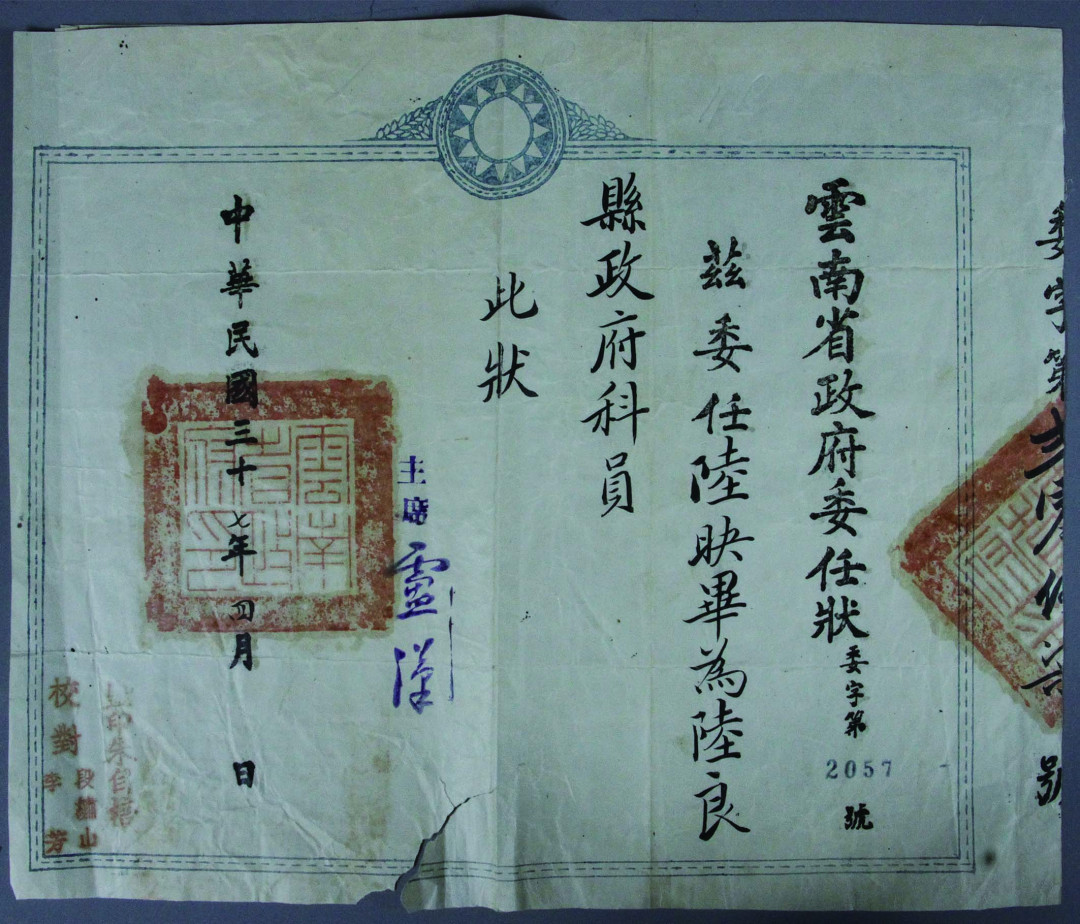 委字第
號
雲南省政府委任狀
委字第
2057
號
茲委任陸映畢為陸良
縣政府科員
此狀
主席盧漢
中華民國三十七年四月 日
監印朱
校對
段 山
李芳